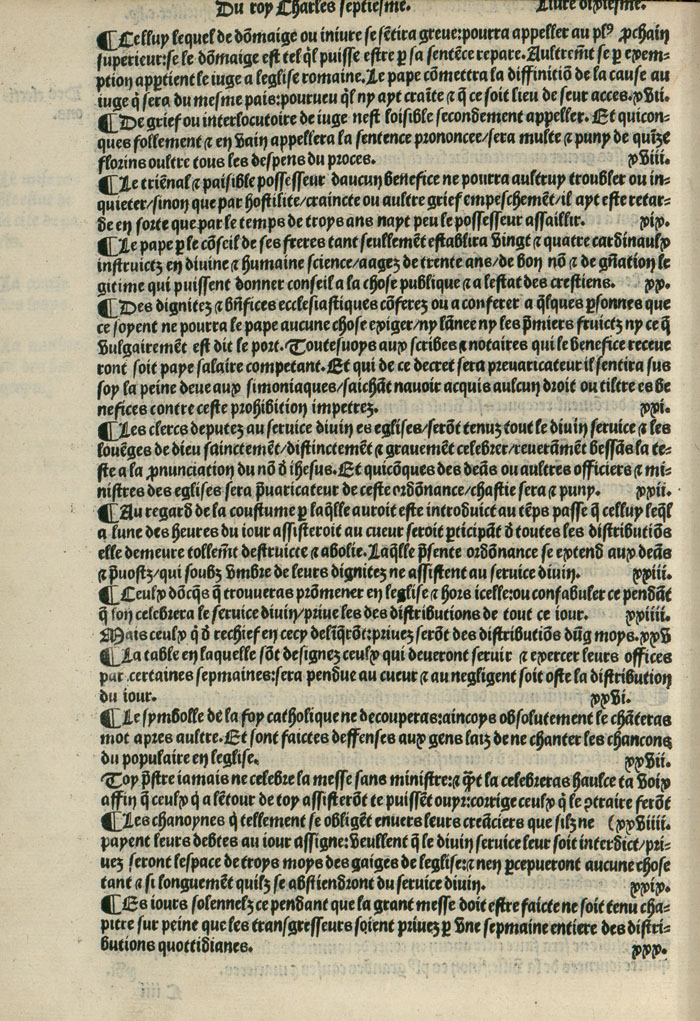 Du roy Charles septiesme. Liure dixiesme.
¶ Celluy lequel de dõmaige ou iniure se sẽtira greue:pourra appeller au plꝰ ꝓchain
superieur:se le dõmaige est tel q̃l puisse estre ꝑ sa sentẽce repare. Aultremẽt se ꝑ exem-
ption apptient le iuge a leglise romaine. Le pape cõmettra la diffinitiõ de la cause au
iuge q̃ sera du mesme pais:pourueu q̃l ny ayt craĩte ⁊ q̃ ce soit lieu de seur acces. xvii.
¶ De grief ou interlocutoire de iuge nest loisible secondement appeller. Et quicon-
ques follement ⁊ en vain appellera la sentence prononcee/sera multe ⁊ puny de quĩze
florins oultre tous les despens du proces. xviii.
¶ Le triẽnal ⁊ paisible possesseur daucun benefice ne pourra aultruy troubler ou in-
quieter/sinon que par hostilite/craincte ou aultre grief empeschemẽt/il ayt este retar-
de en sorte que par le temps de troys ans nayt peu le possesseur assaillir. xix.
¶ Le pape ꝑ le cõseil de ses freres tant seullemẽt establira vingt ⁊ quatre cardinaulx
instruictz en diuine ⁊ humaine science/aagez de trente ans/de bon nõ ⁊ de gñation le
gitime qui puissent donner conseil a la chose publique ⁊ a lestat des crestiens. xx.
¶ Des dignitez ⁊ bñfices ecclesiastiques cõferez ou a conferer a q̃lques ꝑsonnes que
ce soyent ne pourra le pape aucune chose exiger/ny lãnee ny les p̃miers fruictz ny ce q̃
vulgairemẽt est dit le port. Toutesuoys aux scribes ⁊ notaires qui le benefice receue
ront soit paye salaire competant. Et qui de ce decret sera preuaricateur il sentira sus
soy la peine deue aux simoniaques/saichãt nauoir acquis aulcun droit ou tiltre es be
nefices contre ceste prohibition impetrez. xxi.
¶ Les clercs deputez au seruice diuin es eglises/serõt tenuz tout le diuin seruice ⁊ les
louẽges de dieu sainctemẽt/distinctemẽt ⁊ grauemẽt celebrer/reuerãmẽt bessãs la te-
ste a la ꝓnunciation du nõ d̃ ihesus. Et quicõques des deãs ou aultres officiers ⁊ mi-
nistres des eglises sera p̃uaricateur de ceste ordõnance/chastie sera ⁊ puny. xxii.
¶ Au regard de la coustume ꝑ laq̃lle auroit este introduict au tẽps passe q̃ celluy leq̃l
a lune des heures du iour assisteroit au cueur seroit ꝑticipãt d̃ toutes les distributiõs
elle demeure tollemẽt destruicte ⁊ abolie. Laq̃lle p̃sente ordõnance se extend aux deãs
⁊ p̃uostz/qui soubz vmbre de leurs dignitez ne assistent au seruice diuin. xxiii.
¶ Ceulx dõcq̃s q̃ trouueras prõmener en leglise ⁊ hors icelle:ou confabuler ce pendãt
q̃ lon celebrera le seruice diuin/priue les des distributions de tout ce iour. xxiiii.
Mais ceulx q̃ d̃ rechief en cecy delĩq̃rõt:priuez serõt des distributiõs dũg moys. xxv
¶ La table en laquelle sõt designez ceulx qui deueront seruir ⁊ exercer leurs offices
par certaines sepmaines:sera pendue au cueur ⁊ au negligent soit oste la distribution
du iour. xxvi.
¶ Le symbolle de la foy catholique ne decouperas:aincoys obsolutement le chãteras
mot apres aultre. Et sont faictes deffenses aux gens laiz de ne chanter les chancons
du populaire en leglise. xxvii.
Toy p̃stre iamais ne celebre la messe sans ministre:⁊ q̃t la celebreras haulce ta voix
affin q̃ ceulx q̃ a lẽtour de toy assisterõt te puissẽt ouyr:corrige ceulx q̃ le ꝯtraire ferõt
¶ Les chanoynes q̃ tellement se obligẽt enuers leurs creãciers que silz ne (xxviiii.
payent leurs debtes au iour assigne:veullent q̃ le diuin seruice leur soit interdict/pri-
uez seront lespace de troys moys des gaiges de leglise:⁊ nen ꝑcepueront aucune chose
tant ⁊ si longuemẽt quilz se abstiendront du seruice diuin. xxix.
¶ Es iours solennelz ce pendant que la grant messe doit estre faicte ne soit tenu cha-
pitre sur peine que les transgresseurs soient priuez ꝑ vne sepmaine entiere des distri-
butions quottidianes. xxx.